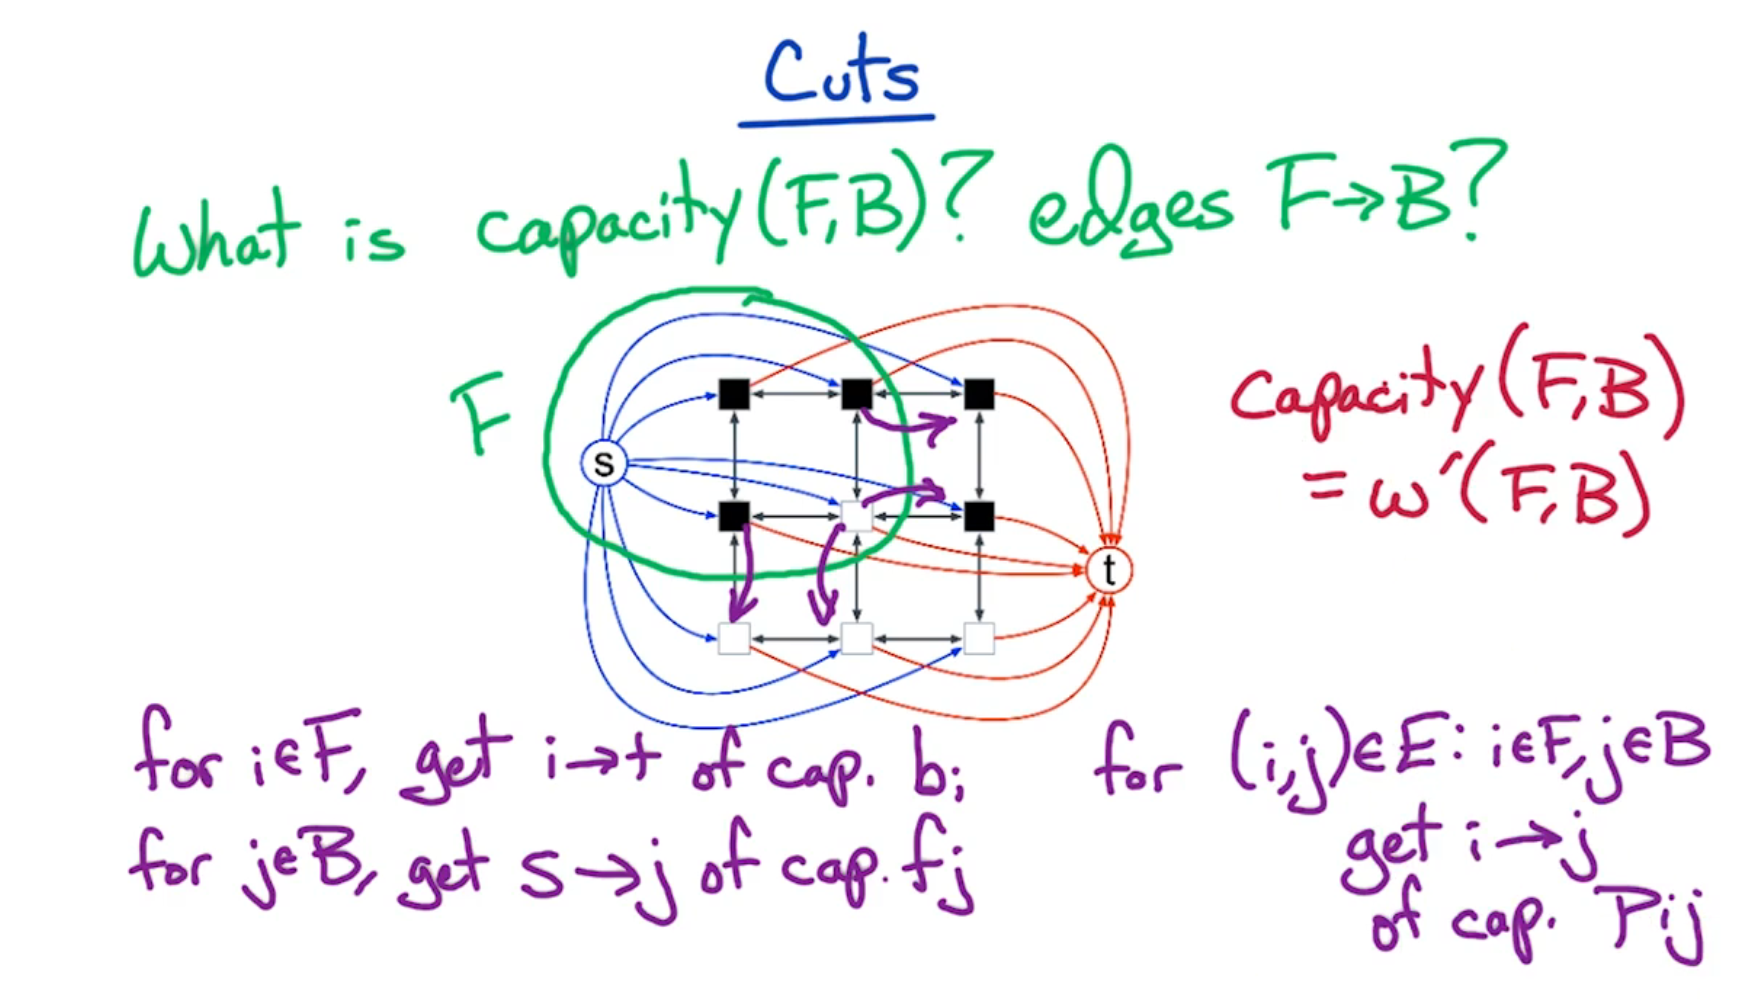 Cuts
What is capacity(F,B)? edges F→B?
F
s
t
capacity(F,B)
= w'(F,B)
for i∈F, get i→t of cap. bi
for j∈B, get s→j of cap. fj
for (i,j)∈E: i∈F, j∈B
get i→j
of cap. Pij